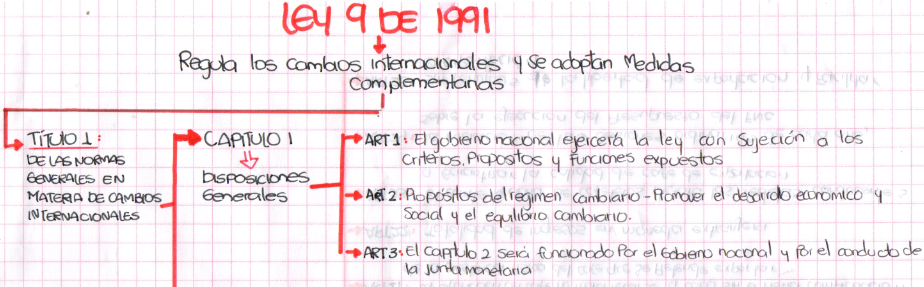 LEY 9 DE 1991
Regula los cambios internacionales y se adoptan Medidas
complementarias
TÍTULO 1:
DE LAS NORMAS
GENERALES EN
MATERIA DE CAMBIOS
INTERNACIONALES
CAPITULO 1
DISPOSICIONES
Generales
ART 1: El gobierno nacional ejercerá la ley con Sujeción a los
Criterios, Propositos y funciones expuestos
ART 2: Propósitos del regimen cambiario - Promover el desarrollo económico y
Social y el equilibrio cambiario.
ART 3: El capítulo 2 será funcionado Por el Gobierno nacional y por el conducto de
la junta monetaria